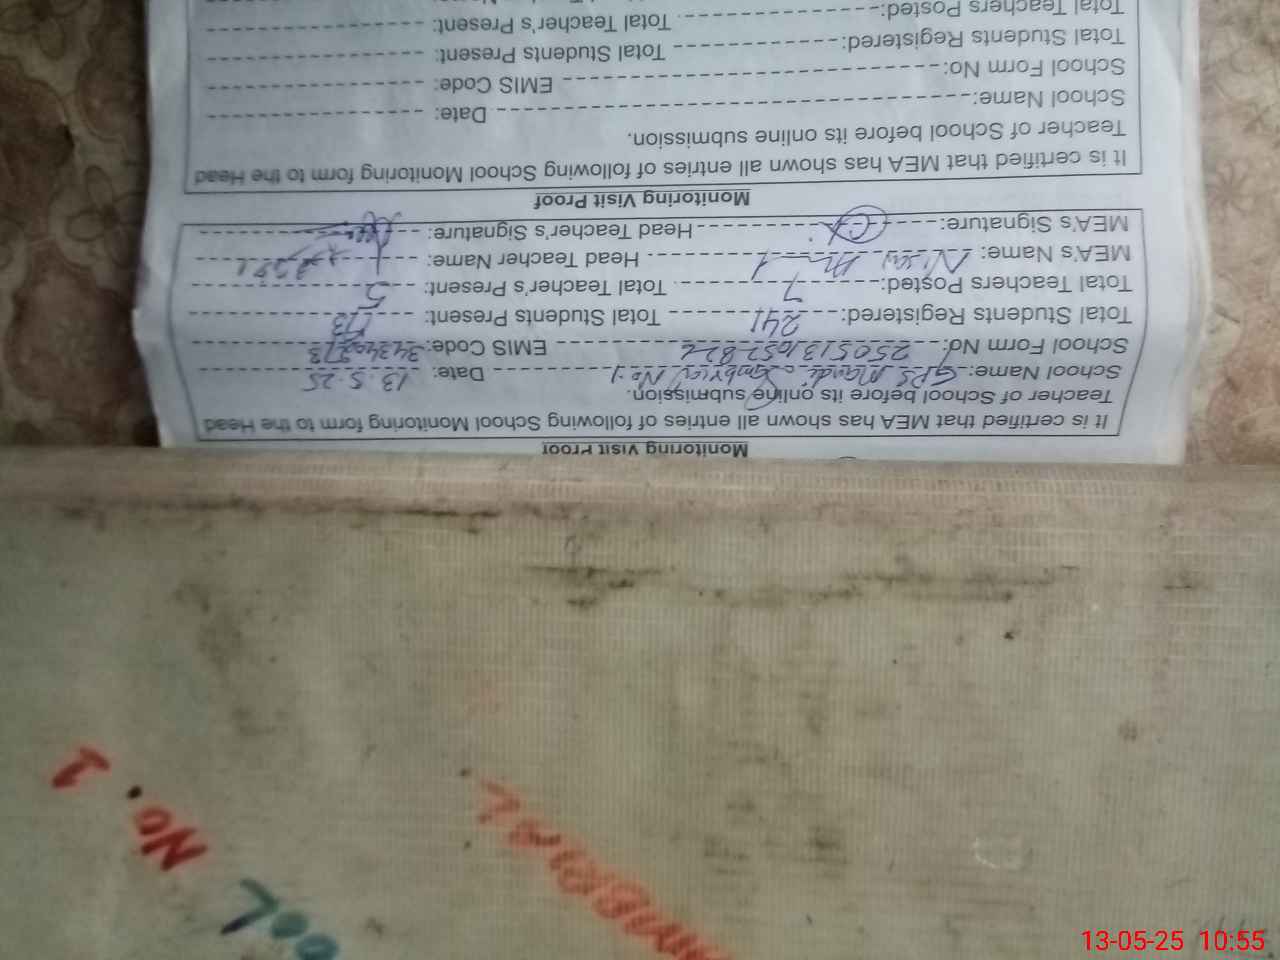 Monitoring Visit Proof
It is certified that MEA has shown all entries of following School Monitoring form to the Head
Teacher of School before its online submission.
School Name: GPS Mandi No.1 Date: 13.5.25
School Form No: EMIS Code:
Total Students Registered: 241 Total Students Present: 173
Total Teachers Posted: 7 Total Teacher's Present: 5
MEA's Name: Head Teacher Name:
MEA's Signature: Head Teacher's Signature:
Monitoring Visit Proof
It is certified that MEA has shown all entries of following School Monitoring form to the Head
Teacher of School before its online submission.
School Name: Date:
School Form No: EMIS Code:
Total Students Registered: Total Students Present:
Total Teachers Posted: Total Teacher's Present:
No. 1
13-05-25 10:55